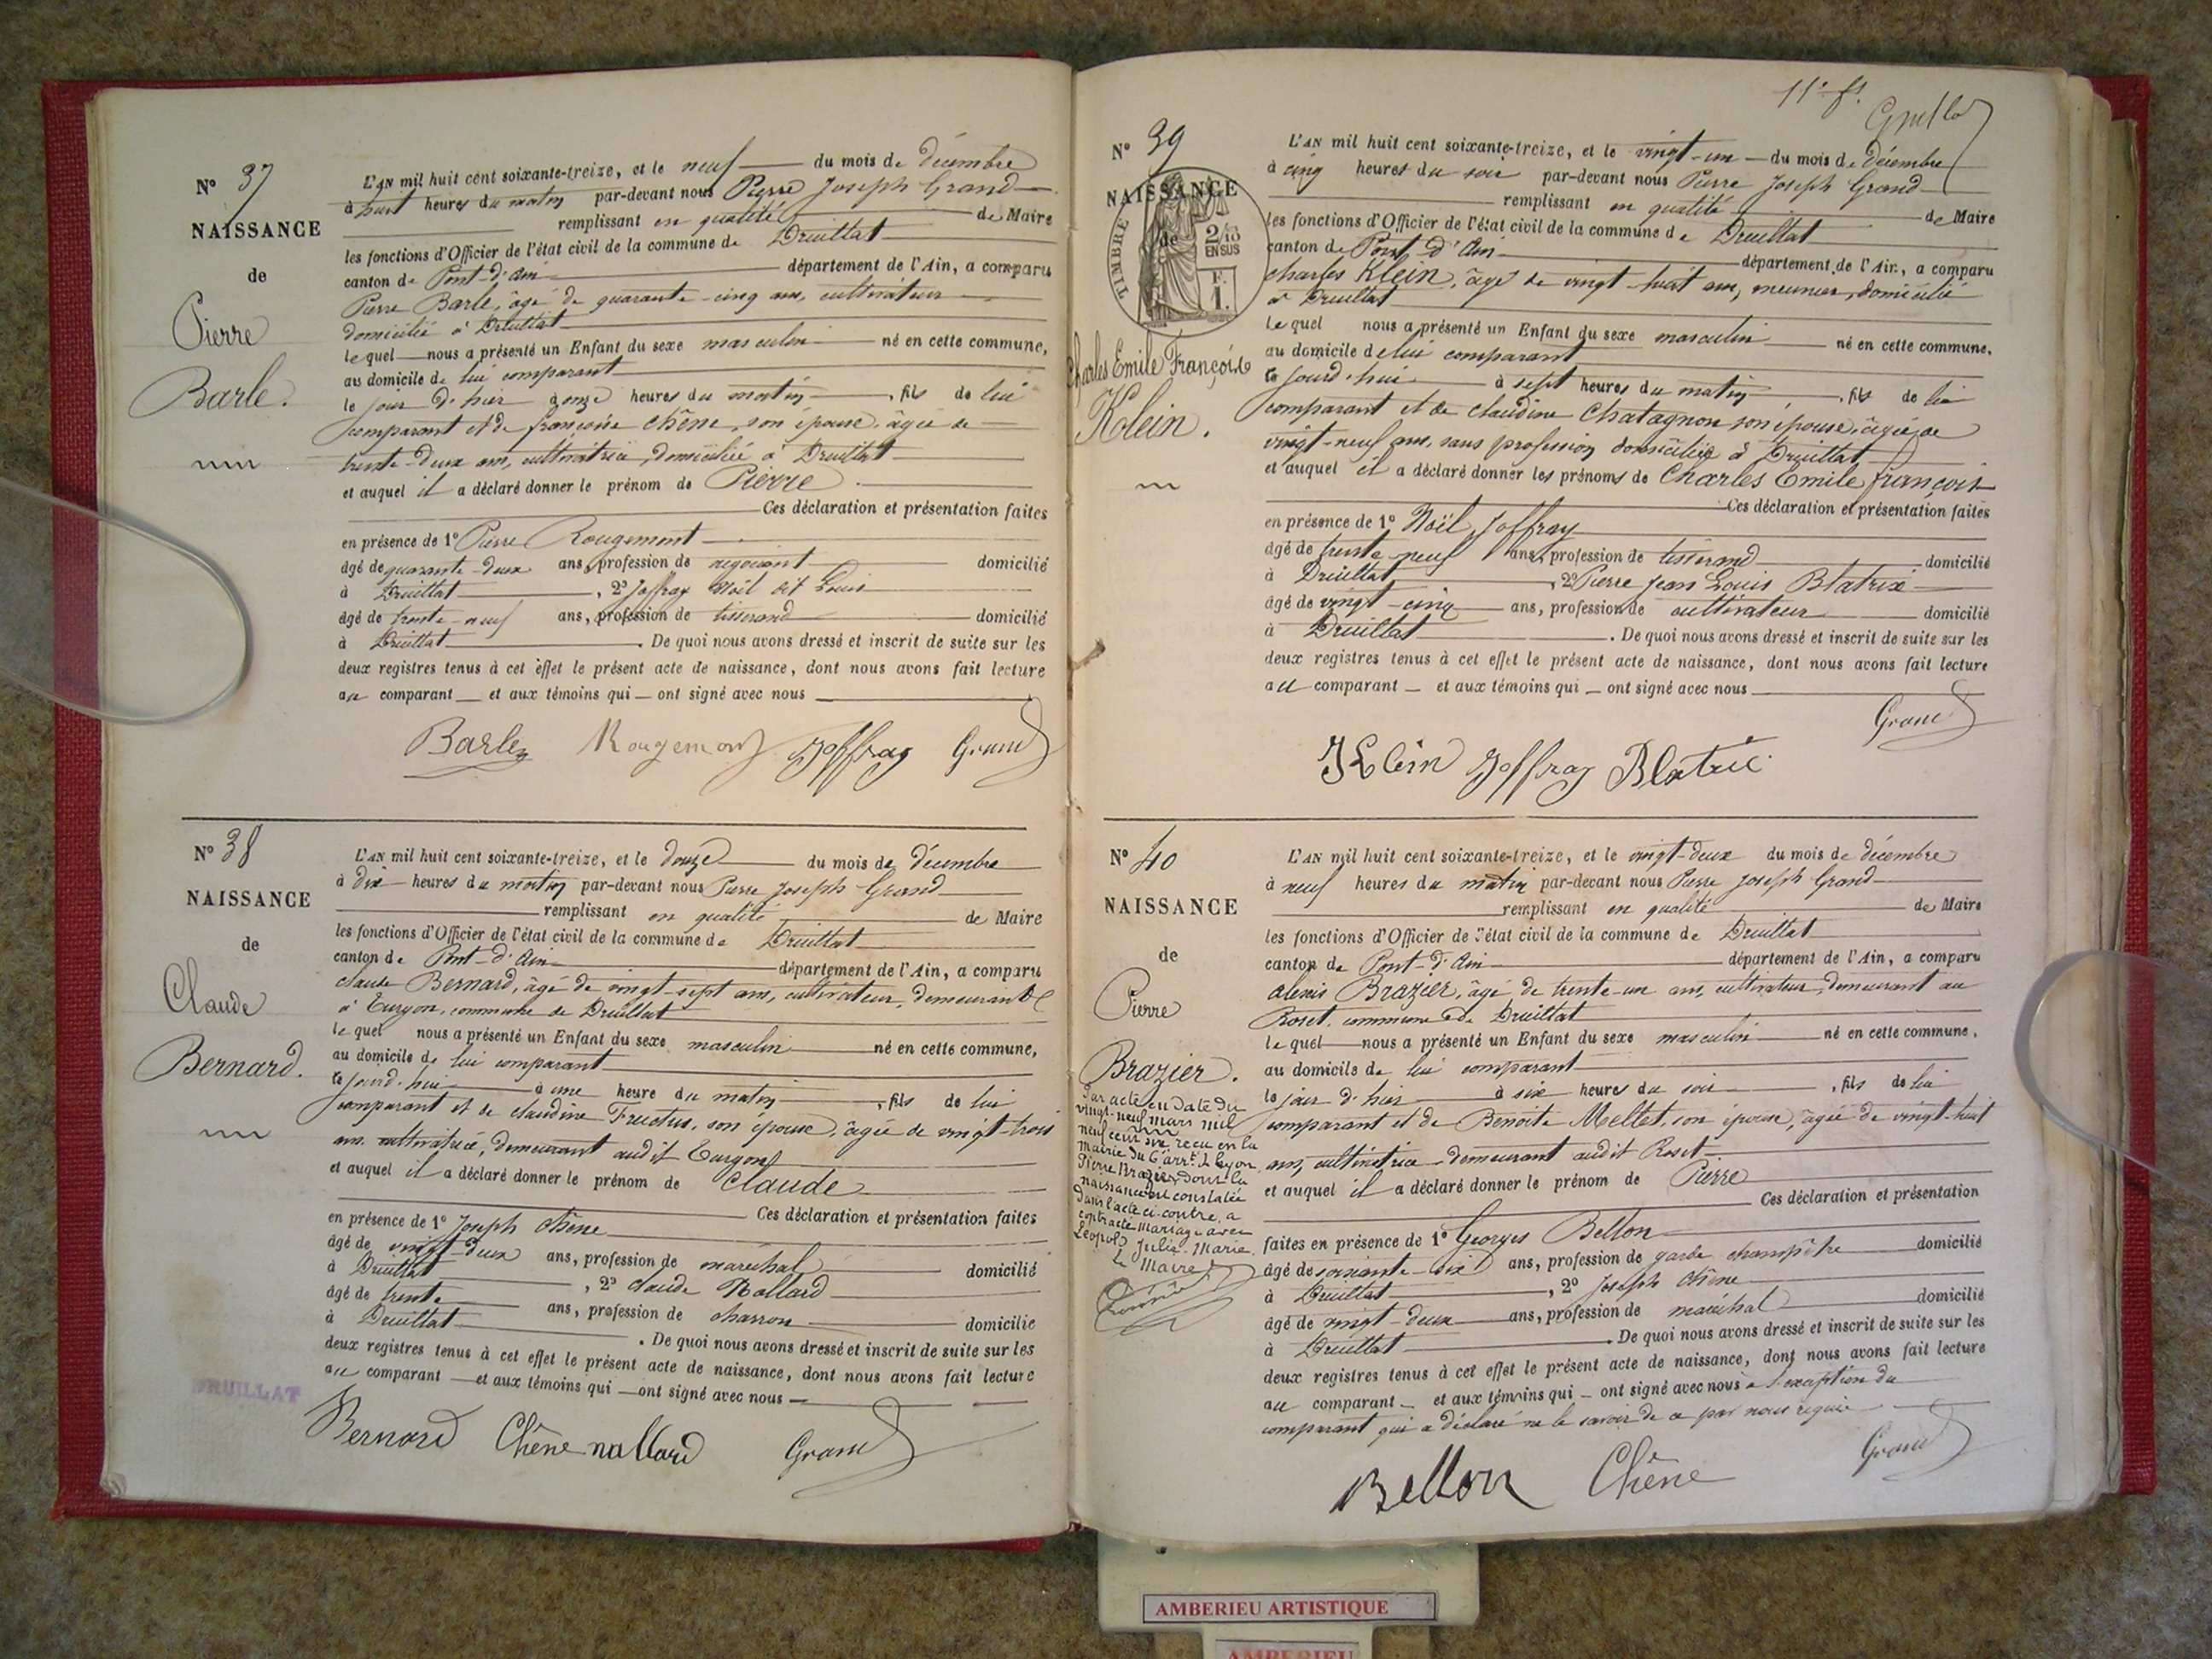 N° 37
NAISSANCE
de
Pierre
Barle.
L'AN mil huit cent soixante-treize, et le neuf du mois de décembre
à huit heures du matin par-devant nous Pierre Joseph Grand
remplissant en qualité de Maire
les fonctions d'Officier de l'état civil de la commune de Druillat
canton de Pont-d'Ain département de l'Ain, a comparu
Pierre Barle, âgé de quarante-cinq ans, cultivateur
domicilié à Druillat
lequel nous a présenté un Enfant du sexe masculin né en cette commune,
au domicile de lui comparant
le jour d'hier à onze heures du matin, fils de lui
comparant et de françoise Chêne, son épouse, âgée de
trente-deux ans, cultivatrice, domiciliée à Druillat
et auquel il a déclaré donner le prénom de Pierre.
Ces déclaration et présentation faites
en présence de 1° Pierre Rougemont
âgé de quarante-deux ans, profession de négociant domicilié
à Druillat, 2° Joffray Noël dit Louis
âgé de trente-neuf ans, profession de tisserand domicilié
à Druillat. De quoi nous avons dressé et inscrit de suite sur les
deux registres tenus à cet effet le présent acte de naissance, dont nous avons fait lecture
au comparant et aux témoins qui ont signé avec nous
Barle Rougemont Joffray Grand
N° 38
NAISSANCE
de
Claude
Bernard.
L'AN mil huit cent soixante-treize, et le douze du mois de décembre
à dix heures du matin par-devant nous Pierre Joseph Grand
remplissant en qualité de Maire
les fonctions d'Officier de l'état civil de la commune de Druillat
canton de Pont-d'Ain département de l'Ain, a comparu
claude Bernard, âgé de vingt-sept ans, cultivateur, demeurant
à Turgon, commune de Druillat
lequel nous a présenté un Enfant du sexe masculin né en cette commune,
au domicile de lui comparant
ce jourd'hui à une heure du matin, fils de lui
comparant et de claudine Fructus, son épouse, âgée de vingt-trois
ans, cultivatrice, demeurant audit Turgon
et auquel il a déclaré donner le prénom de Claude
Ces déclaration et présentation faites
en présence de 1° Joseph Chêne
âgé de vingt-deux ans, profession de maréchal domicilié
à Druillat, 2° claude Nallard
âgé de trente ans, profession de charron domicilié
à Druillat. De quoi nous avons dressé et inscrit de suite sur les
deux registres tenus à cet effet le présent acte de naissance, dont nous avons fait lecture
au comparant et aux témoins qui ont signé avec nous
DRUILLAT
Bernard Chêne nallard Grand
11e ft.
N° 39
NAISSANCE
de
TIMBRE
2/10
EN SUS
F.
1.
Charles Emile François
Klein.
L'AN mil huit cent soixante-treize, et le vingt-un du mois de décembre
à cinq heures du soir par-devant nous Pierre Joseph Grand
remplissant en qualité de Maire
les fonctions d'Officier de l'état civil de la commune de Druillat
canton de Pont d'Ain département de l'Ain, a comparu
charles Klein, âgé de vingt-huit ans, meunier, domicilié
à Druillat
lequel nous a présenté un Enfant du sexe masculin né en cette commune,
au domicile de lui comparant
ce jourd'hui à sept heures du matin, fils de lui
comparant et de claudine Chatagnon son épouse, âgée de
vingt-neuf ans, sans profession domiciliée à Druillat
et auquel il a déclaré donner les prénoms de Charles Emile françois
Ces déclaration et présentation faites
en présence de 1° Noël Joffray
âgé de trente neuf ans, profession de tisserand domicilié
à Druillat, 2° Pierre Jean Louis Blatrix
âgé de vingt-cinq ans, profession de cultivateur domicilié
à Druillat. De quoi nous avons dressé et inscrit de suite sur les
deux registres tenus à cet effet le présent acte de naissance, dont nous avons fait lecture
au comparant et aux témoins qui ont signé avec nous
Grand
Klein Joffray Blatric
N° 40
NAISSANCE
de
Pierre
Brazier.
Par acte en date du
vingt-neuf mars mil
neuf cent six reçu en la
mairie du 6e arrt. de Lyon
Pierre Brazier dont la
naissance est constatée
dans l'acte ci-contre, a
contracté mariage avec
Léopold Julie-Marie.
Le Maire
L'AN mil huit cent soixante-treize, et le vingt-deux du mois de décembre
à neuf heures du matin par-devant nous Pierre Joseph Grand
remplissant en qualité de Maire
les fonctions d'Officier de l'état civil de la commune de Druillat
canton de Pont-d'Ain département de l'Ain, a comparu
alexis Brazier, âgé de trente-un ans, cultivateur, demeurant au
Roset, commune de Druillat
lequel nous a présenté un Enfant du sexe masculin né en cette commune,
au domicile de lui comparant
le jour d'hier à six heures du soir, fils de lui
comparant et de Benoite Mellet, son épouse, âgée de vingt-huit
ans, cultivatrice demeurant audit Roset
et auquel il a déclaré donner le prénom de Pierre
Ces déclaration et présentation
faites en présence de 1° Georges Bellon
âgé de soixante-six ans, profession de garde champêtre domicilié
à Druillat, 2° Joseph Chêne
âgé de vingt-deux ans, profession de maréchal domicilié
à Druillat. De quoi nous avons dressé et inscrit de suite sur les
deux registres tenus à cet effet le présent acte de naissance, dont nous avons fait lecture
au comparant et aux témoins qui ont signé avec nous à l'exception du
comparant qui a déclaré ne le savoir de ce par nous requis
Bellon Chêne Grand
AMBERIEU ARTISTIQUE
AMBERIEU